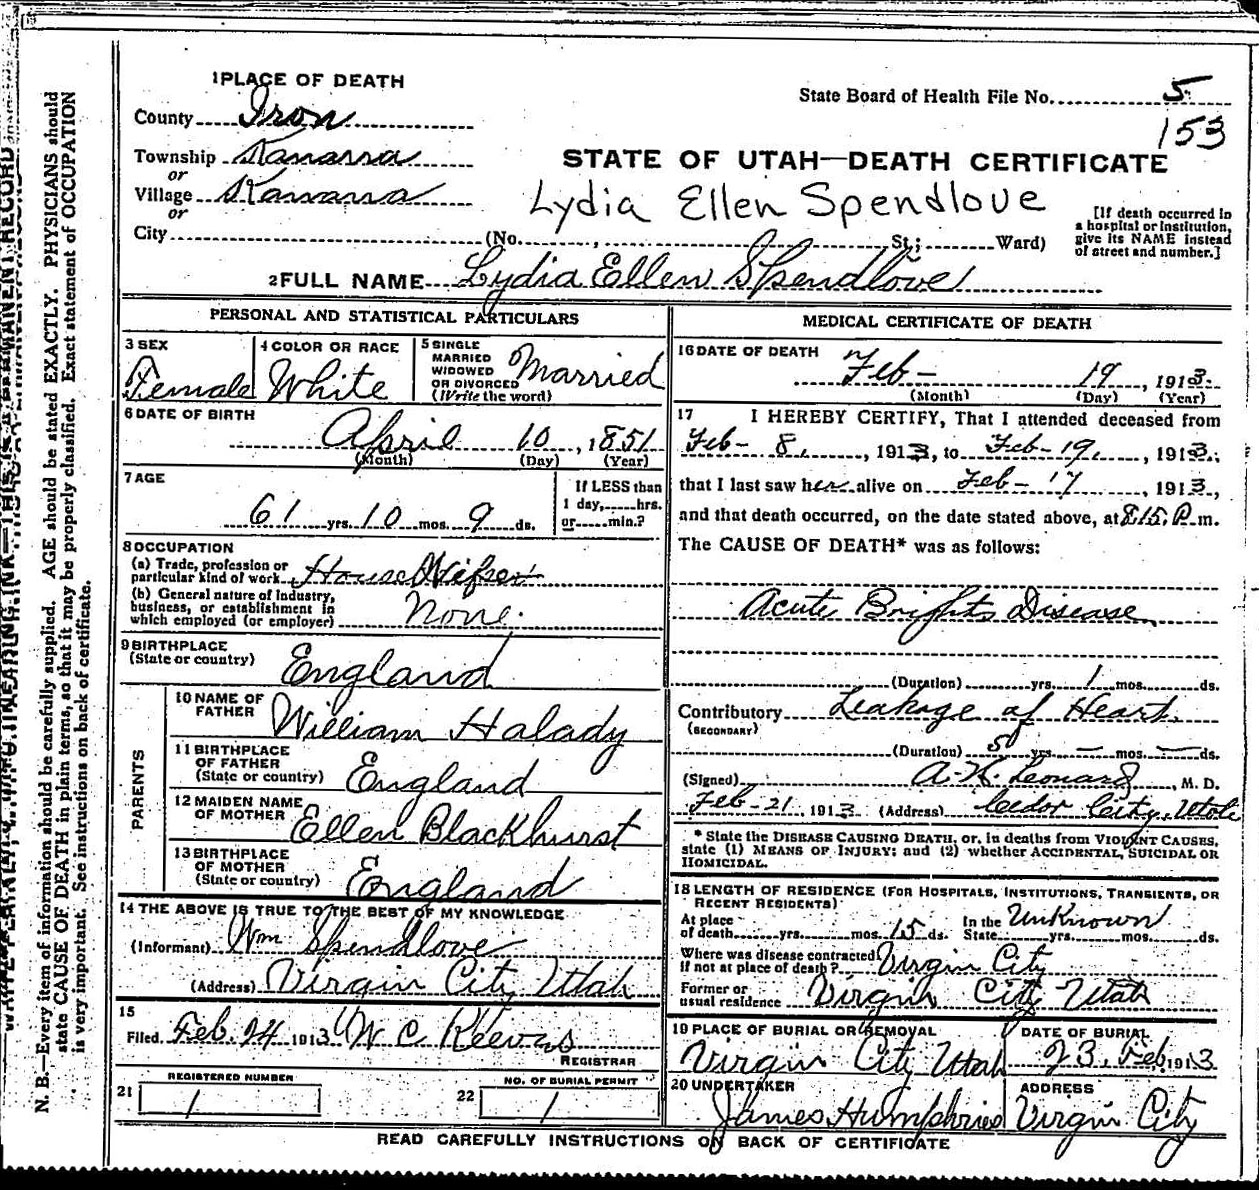 1 PLACE OF DEATH
State Board of Health File No. 5
153
County Iron
Township Kanarra
or
Village Kanarra
or
City (No. , St.; Ward)
STATE OF UTAH—DEATH CERTIFICATE
Lydia Ellen Spendlove
[If death occurred in
a hospital or institution,
give its NAME instead
of street and number.]
2 FULL NAME Lydia Ellen Spendlove
PERSONAL AND STATISTICAL PARTICULARS
3 SEX
Female
4 COLOR OR RACE
White
5 SINGLE
MARRIED
WIDOWED
OR DIVORCED
(Write the word)
Married
6 DATE OF BIRTH
April 10, 1851
(Month) (Day) (Year)
7 AGE
61 yrs. 10 mos. 9 ds.
If LESS than
1 day, hrs.
or min.?
8 OCCUPATION
(a) Trade, profession or
particular kind of work
(b) General nature of industry,
business, or establishment in
which employed (or employer) None.
9 BIRTHPLACE
(State or country) England
PARENTS
10 NAME OF
FATHER William Halady
11 BIRTHPLACE
OF FATHER
(State or country) England
12 MAIDEN NAME
OF MOTHER Ellen Blackhurst
13 BIRTHPLACE
OF MOTHER
(State or country) England
14 THE ABOVE IS TRUE TO THE BEST OF MY KNOWLEDGE
(Informant) Wm Spendlove
(Address) Virgin City Utah
15
Filed Feb. 24 1913 W C Reeves
REGISTRAR
21 REGISTERED NUMBER
1
22 NO. OF BURIAL PERMIT
1
MEDICAL CERTIFICATE OF DEATH
16 DATE OF DEATH
Feb- 19, 1913.
(Month) (Day) (Year)
17 I HEREBY CERTIFY, That I attended deceased from
Feb- 8, 1913, to Feb-19, 1913.
that I last saw her alive on Feb-17, 1913,
and that death occurred, on the date stated above, at P. m.
The CAUSE OF DEATH* was as follows:
Acute Brights Disease
(Duration) yrs. 1 mos. ds.
Contributory Leakage of Heart
(SECONDARY)
(Duration) 5 yrs. — mos. — ds.
(Signed) A. N. Leonard, M. D.
Feb-21, 1913 (Address) Cedar City, Utah
* State the DISEASE CAUSING DEATH, or, in deaths from VIOLENT CAUSES,
state (1) MEANS OF INJURY; and (2) whether ACCIDENTAL, SUICIDAL OR
HOMICIDAL.
18 LENGTH OF RESIDENCE (FOR HOSPITALS, INSTITUTIONS, TRANSIENTS, OR
RECENT RESIDENTS)
At place
of death yrs. mos. 15 ds.
In the
State Unknown yrs. mos. ds.
Where was disease contracted
if not at place of death? Virgin City
Former or
usual residence Virgin City Utah
19 PLACE OF BURIAL OR REMOVAL
Virgin City Utah
DATE OF BURIAL
23. Feb, 1913
20 UNDERTAKER
James Humphries
ADDRESS
Virgin City
READ CAREFULLY INSTRUCTIONS ON BACK OF CERTIFICATE
N. B.—Every item of information should be carefully supplied. AGE should be stated EXACTLY. PHYSICIANS should
state CAUSE OF DEATH in plain terms, so that it may be properly classified. Exact statement of OCCUPATION
is very important. See instructions on back of certificate.